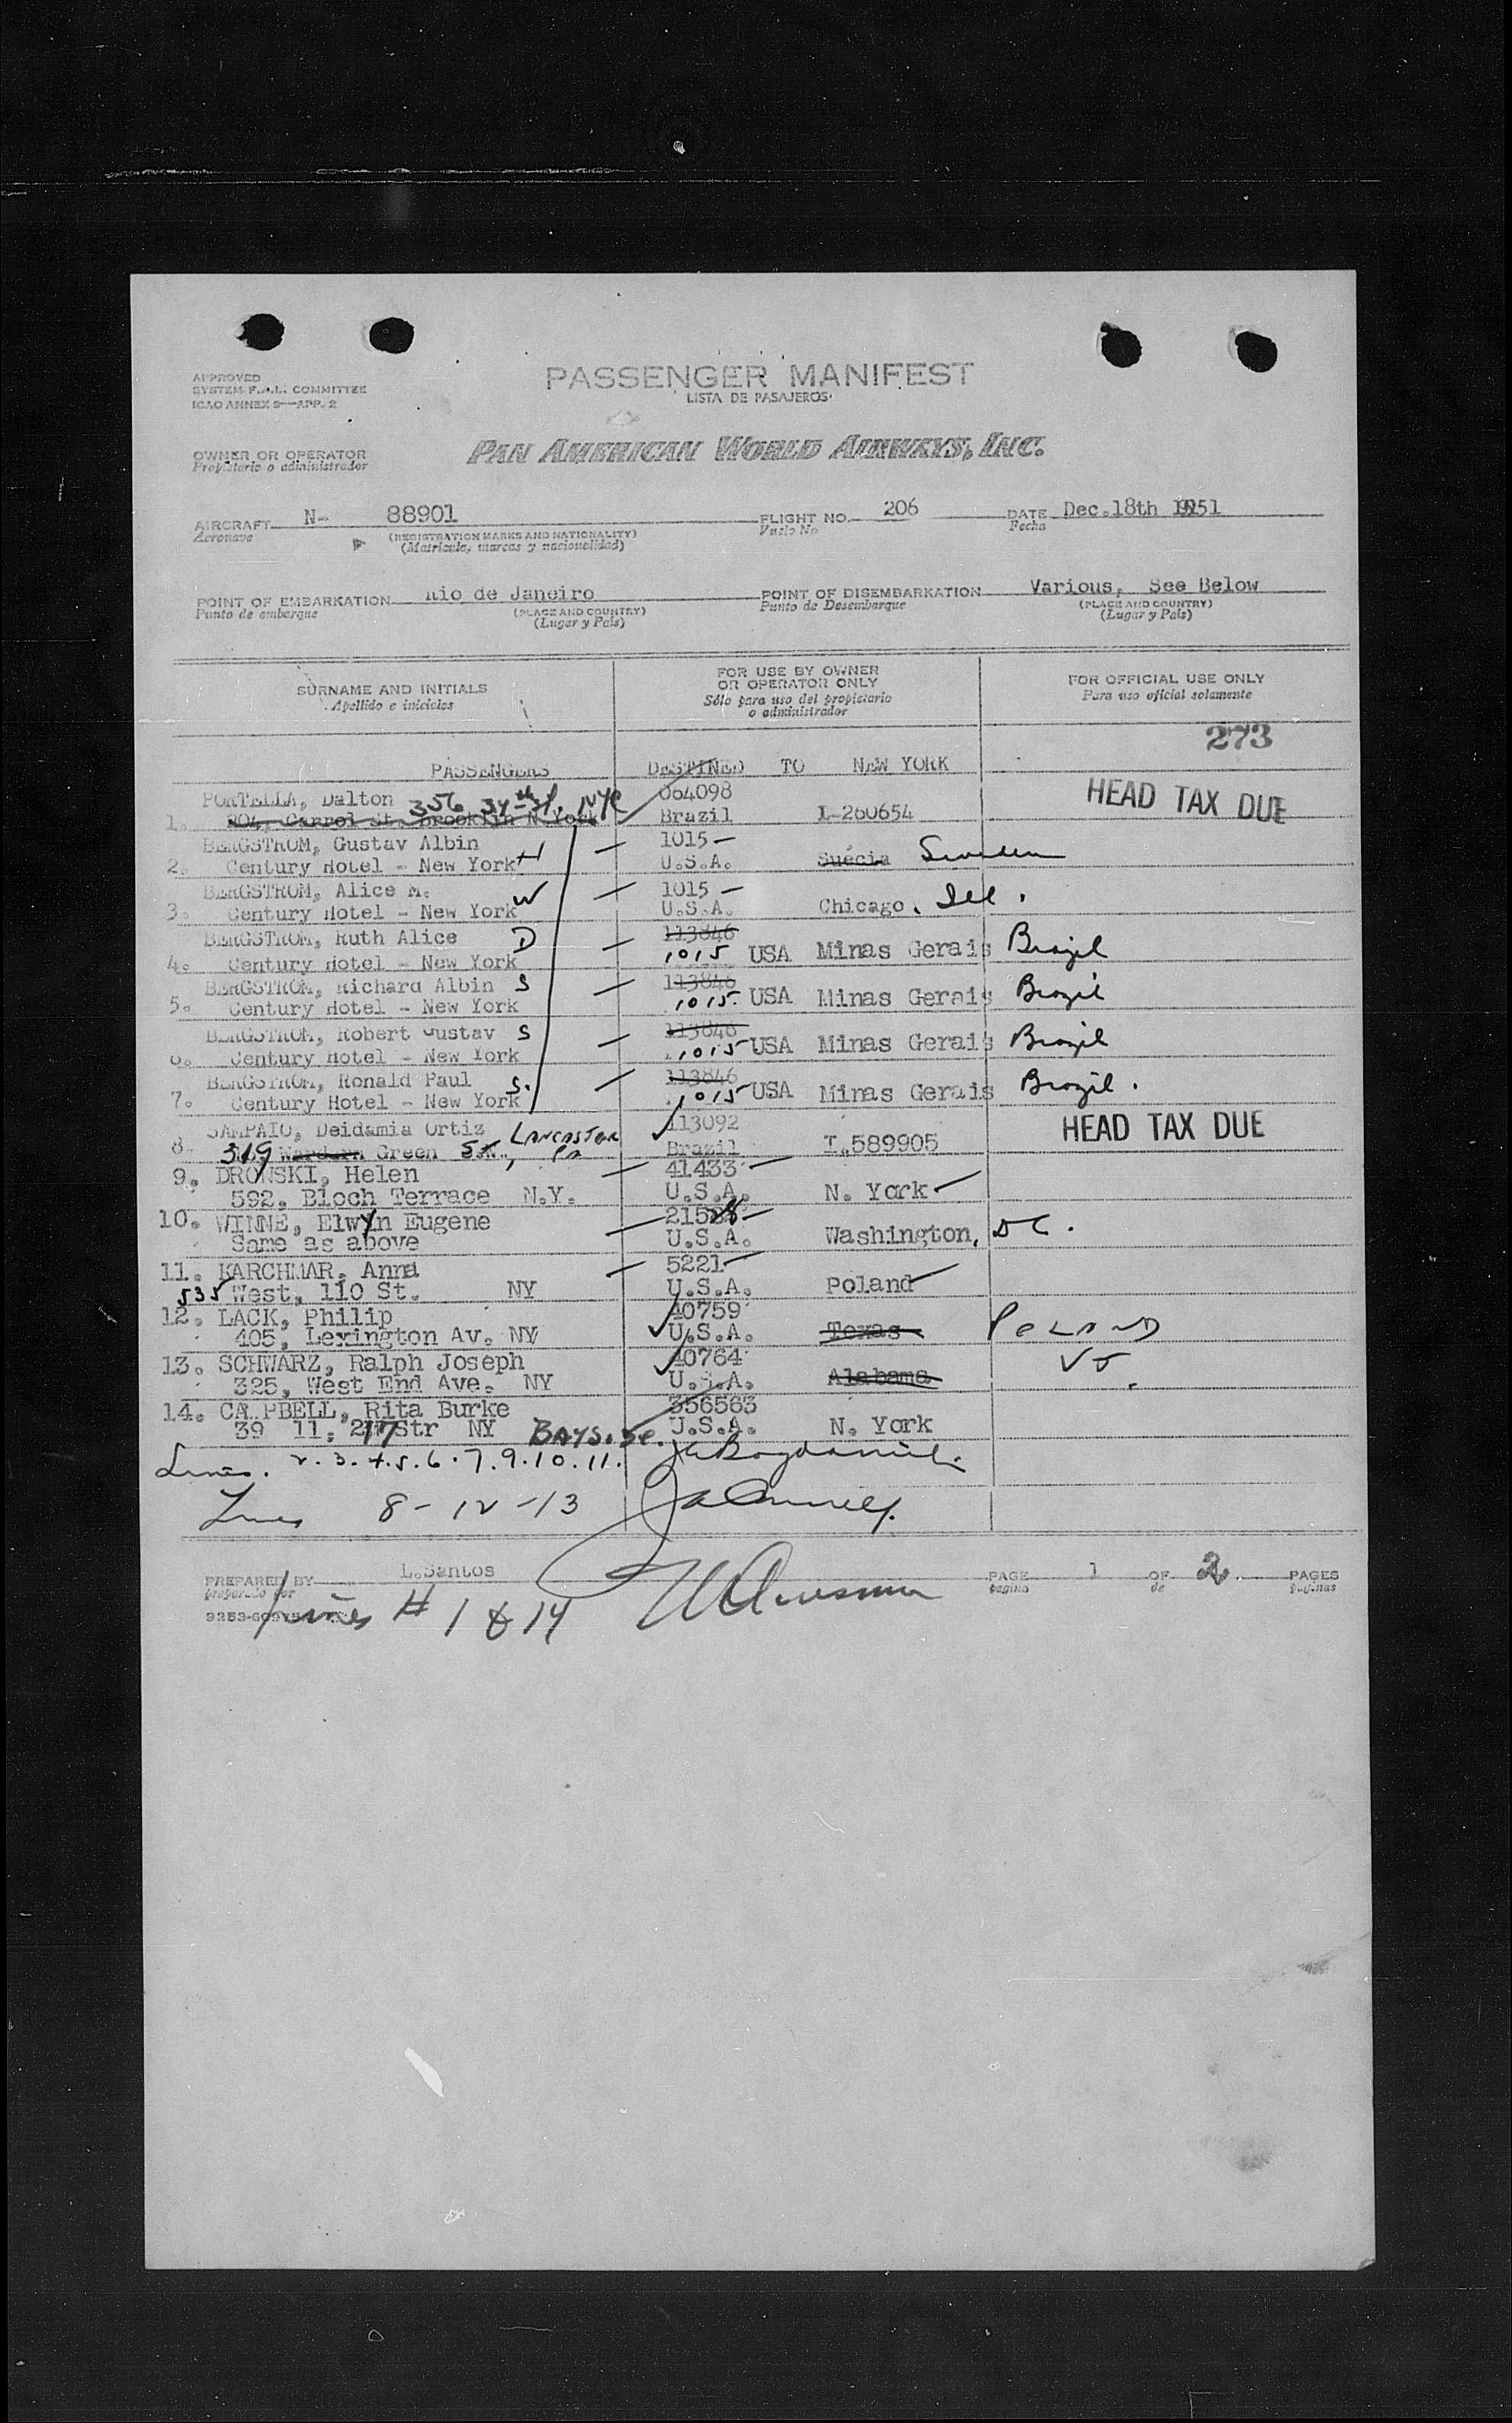 APPROVED
SYSTEM F.A.L. COMMITTEE
ICAO ANNEX 9—APP. 2
PASSENGER MANIFEST
LISTA DE PASAJEROS
OWNER OR OPERATOR
Propietario o administrador
PAN AMERICAN WORLD AIRWAYS, INC.
AIRCRAFT N- 88901 FLIGHT NO. 206 DATE Dec.18th 1951
Aeronave (REGISTRATION MARKS AND NATIONALITY) Vuelo No Fecha
(Matricula, marcas y nacionalidad)
POINT OF EMBARKATION Rio de Janeiro POINT OF DISEMBARKATION Various, See Below
Punto de embarque (PLACE AND COUNTRY) Punto de Desembarque (PLACE AND COUNTRY)
(Lugar y País) (Lugar y País)
SURNAME AND INITIALS FOR USE BY OWNER OR OPERATOR ONLY FOR OFFICIAL USE ONLY
Apellido e iniciales Sólo para uso del propietario o administrador Para uso oficial solamente
273
PASSENGERS DESTINED TO NEW YORK
PORTELLA, Dalton 356 34th St. NYC 064098 HEAD TAX DUE
1. 804, Carrol St. Brooklin N.York Brazil I-260654
BERGSTROM, Gustav Albin 1015 —
2. Century Hotel - New York H U.S.A. Suécia Sweden
BERGSTROM, Alice M. 1015 —
3. Century Hotel - New York W U.S.A. Chicago, Ill.
BERGSTROM, Ruth Alice D 113846
4. Century Hotel - New York 1015 USA Minas Gerais Brazil
BERGSTROM, Richard Albin S 113846
5. Century Hotel - New York 1015 USA Minas Gerais Brazil
BERGSTROM, Robert Gustav S 113846
6. Century Hotel - New York 1015 USA Minas Gerais Brazil
BERGSTROM, Ronald Paul S. 113846
7. Century Hotel - New York 1015 USA Minas Gerais Brazil.
SAMPAIO, Deidamia Ortiz LANCASTER 113092 HEAD TAX DUE
8. 319 Green St., Pa Brazil I.589905
9. DRONSKI, Helen 41433
592, Bloch Terrace N.Y. U.S.A. N. York
10. WINNE, Elwyn Eugene
Same as above U.S.A. Washington, DC.
11. KARCHMAR, Anna 5221
535 West, 110 St. NY U.S.A. Poland
12. LACK, Philip 40759
405, Lexington Av. NY U.S.A. Texas POLAND
13. SCHWARZ, Ralph Joseph 40764
325, West End Ave. NY U.S.A. Alabama
14. CAMPBELL, Rita Burke 356563
39 11, 217 Str NY BAYSIDE U.S.A. N. York
Lines. 2.3.4.5.6.7.9.10.11.
Lines 8-12-13
PREPARED BY L.Santos PAGE 1 OF 2 PAGES
preparado por página de páginas
Lines # 1 & 14